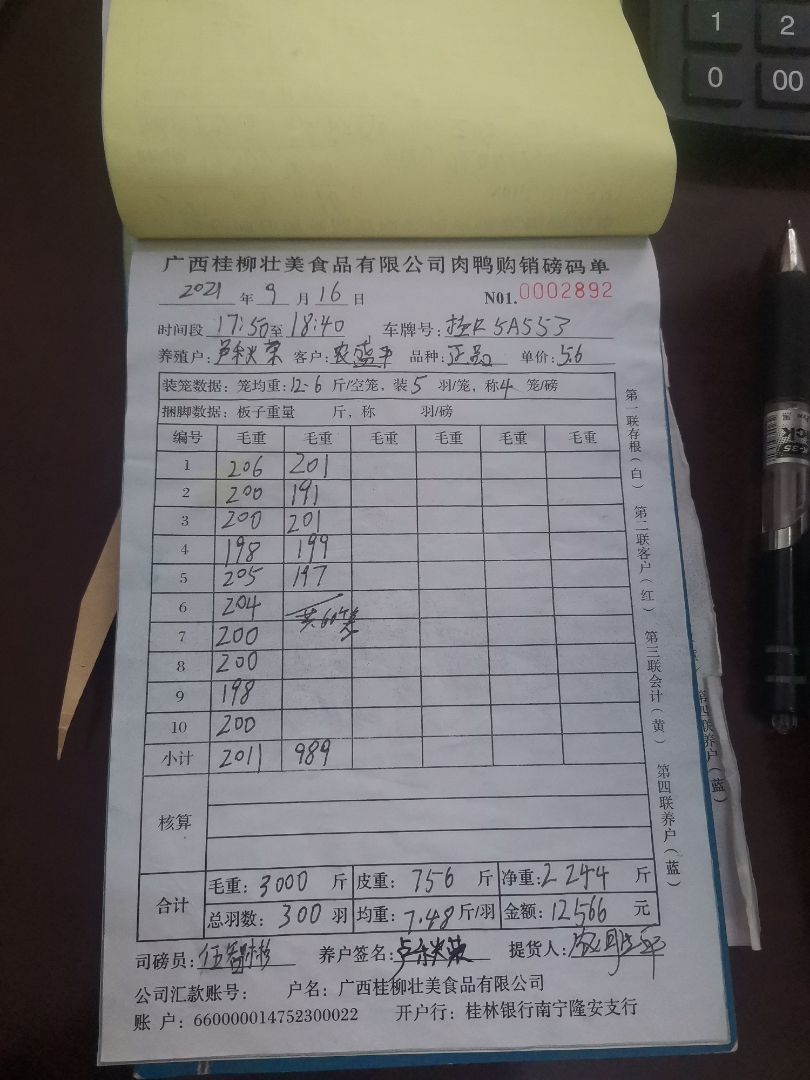 1 2
0 00
广西桂柳壮美食品有限公司肉鸭购销磅码单
2021 年 9 月 16 日 N01.0002892
时间段 17:50至18:40 车牌号: 桂R 5A553
养殖户: 卢秋荣 客户: 农盛平 品种: 正品 单价: 5.6
装笼数据: 笼均重: 12.6 斤/空笼, 装 5 羽/笼, 称 4 笼/磅
捆脚数据: 板子重量 斤, 称 羽/磅
编号 毛重 毛重 毛重 毛重 毛重 毛重
1 206 201
2 200 191
3 200 201
4 198 199
5 205 197
6 204 共60笼
7 200
8 200
9 198
10 200
小计 2011 989
核算
合计 毛重: 3000 斤 皮重: 756 斤 净重: 2244 斤
总羽数: 300 羽 均重: 7.48 斤/羽 金额: 12566 元
司磅员: 伍 彬 养户签名: 卢秋荣 提货人:
公司汇款账号: 户名: 广西桂柳壮美食品有限公司
账 户: 660000014752300022 开户行: 桂林银行南宁隆安支行
第一联存根(白) 第二联客户(红) 第三联会计(黄) 第四联养户(蓝)
第四联养户(蓝)